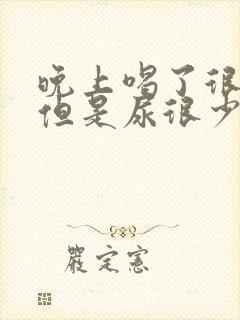 晚上喝了很
但是尿很少
嚴定憲